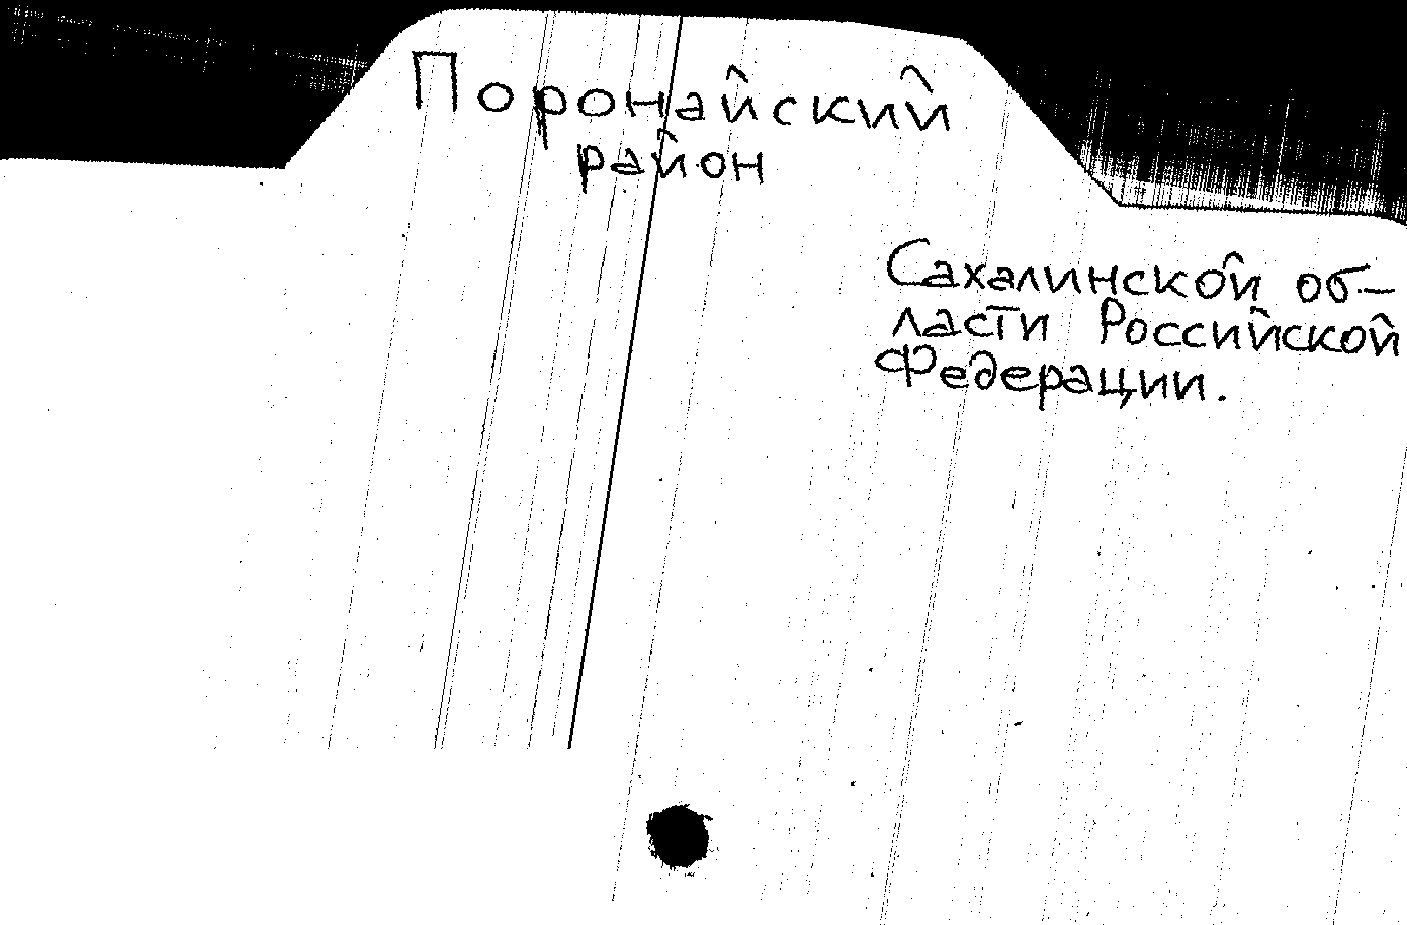 Поронайский
район
Сахалинской об-
ласти Российской
Федерации.